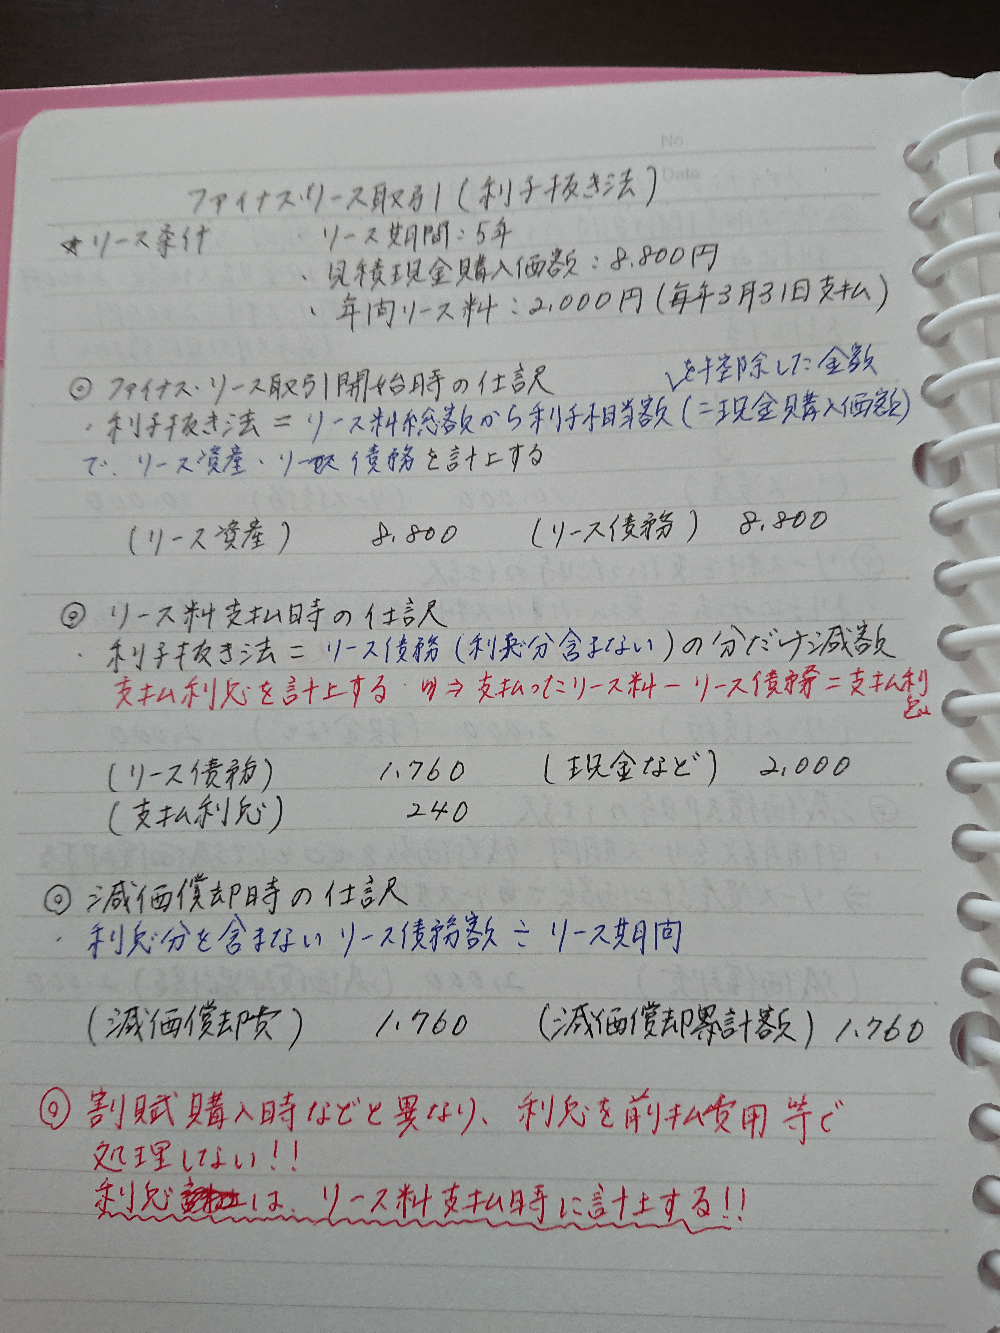 No.
Date
ファイナス・リース取引(利子抜き法)
★リース条件 リース期間:5年
・見積現金購入価額:8,800円
・年間リース料:2,000円(毎年3月31日支払)
◎ファイナス・リース取引開始時の仕訳 を控除した金額
・利子抜き法=リース料総額から利子相当額(=現金購入価額)
で、リース資産・リース債務を計上する
(リース資産) 8,800 (リース債務) 8,800
◎リース料支払時の仕訳
・利子抜き法=リース債務(利息分含まない)の分だけ減額
支払利息を計上する ⇒支払ったリース料-リース債務=支払利
息
(リース債務) 1,760 (現金など) 2,000
(支払利息) 240
◎減価償却時の仕訳
・利息分を含まないリース債務額÷リース期間
(減価償却費) 1,760 (減価償却累計額) 1,760
◎割賦購入時などと異なり、利息を前払費用等で
処理しない!!
利息は、リース料支払時に計上する!!